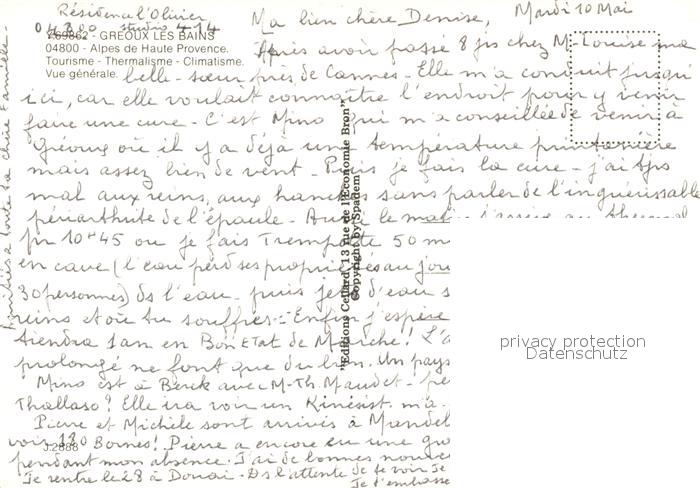 Résidence l'Olivier
04800 studio 414
V69862 - GREOUX LES BAINS
04800 - Alpes de Haute Provence.
Tourisme - Thermalisme - Climatisme.
Vue générale.
Mardi 10 Mai
Ma bien chère Denise,
Après avoir passé 8 jrs chez M-Louise ma
belle-sœur près de Cannes - Elle m'a conduit jusqu'
ici, car elle voulait connaître l'endroit pour y venir
faire une cure - C'est Mino qui m'a conseillée de venir à
Gréoux où il y a déjà une température printanière
mais assez bien de vent - Puis je fais la cure - j'ai tjs
mal aux reins, aux hanches sans parler de l'inguérissable
périarthrite de l'épaule - Aussi le matin j'arrive au thermal
pr 10H45 ou je fais Trempette 50 m
en cave (l'eau perd ses propriétés au jou
30 personnes) ds l'eau - puis jet d'eau s
reins et où tu souffres - Enfin j'espère
tiendra 1 an en Bon Etat de Marche! L'a
prolongé ne font que du bien. Un pays
Mino est à Berck avec M-Th. Maudet - pe
Thallaso? Elle ira voir un Kinésist. m'a
Pierre et Michèle sont arrivés à Mandel
voir 120 Bornes! Pierre a encore eu une gro
J.2888
pendant mon absence. J'ai de bonnes nouve
Je rentre le 28 à Douai - Ds l'attente de te voir Je
Je t'embrasse
Amitiés à toute ta chère Famille -
"Editions Cellard, 13 rue de l'Economie Bron"
Copyright by Spadem
privacy protection
Datenschutz